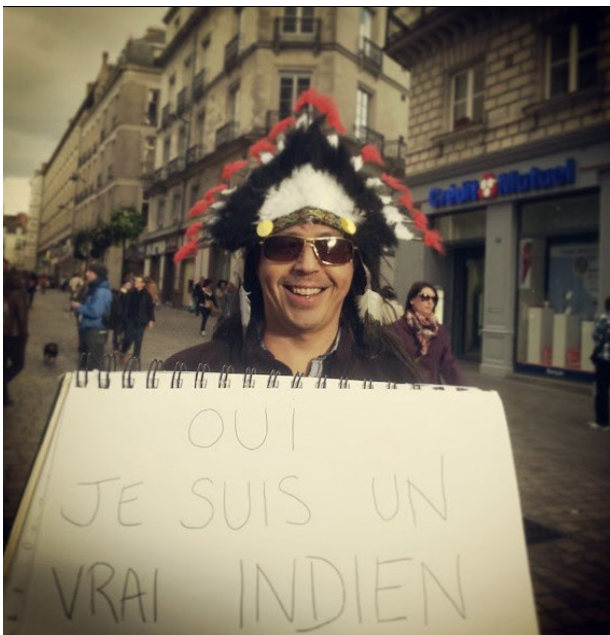 Crédit Mutuel
OUI
JE SUIS UN
VRAI INDIEN